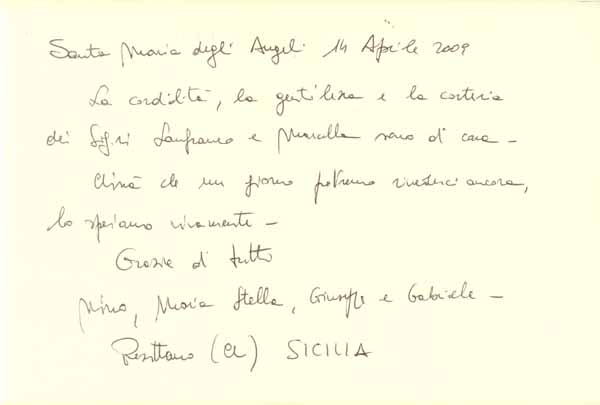 Santa Maria degli Angeli 14 Aprile 2009
La cordilità, la gentileza e la cortesia
dei Sig.ri Lanfranco e Marcella sono di casa -
Chissà che un giorno potremo rivederci ancora,
lo speriamo vivamente -
Grazie di tutto
Nino, Maria Stella, Giuseppe e Gabriele -
Resuttano (CL) SICILIA